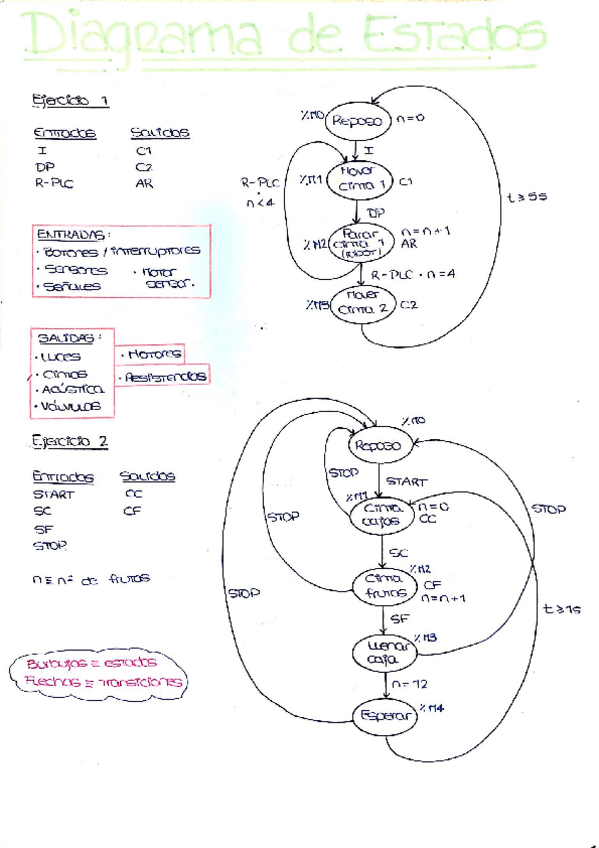 Diagrama de Estados
Ejercicio 1
Entradas Salidas
I C1
DP C2
R-PLC AR
ENTRADAS:
• Botones / interruptores
• Sensores • Motor
• Señales sensor.
SALIDAS:
• Luces • Motores
• Cintas • Resistencias
• Acústica
• Válvulas
%M0 Reposo n=0
I
%M1 Mover cinta 1 C1
DP
%M2 Parar cinta 1 (robot) n=n+1 AR
R-PLC · n<4
R-PLC · n=4
%M3 Mover cinta 2 C2
t≥5s
Ejercicio 2
Entradas Salidas
START CC
SC CF
SF
STOP
n≡nº de frutas
Burbujas ≡ estados
Flechas ≡ transiciones
%M0
Reposo
START
%M1
Cinta cajas n=0 CC
SC
%M2
Cinta frutas CF n=n+1
SF
%M3
Llenar caja
n=12
Esperar %M4
STOP
STOP
STOP
STOP
t≥1s